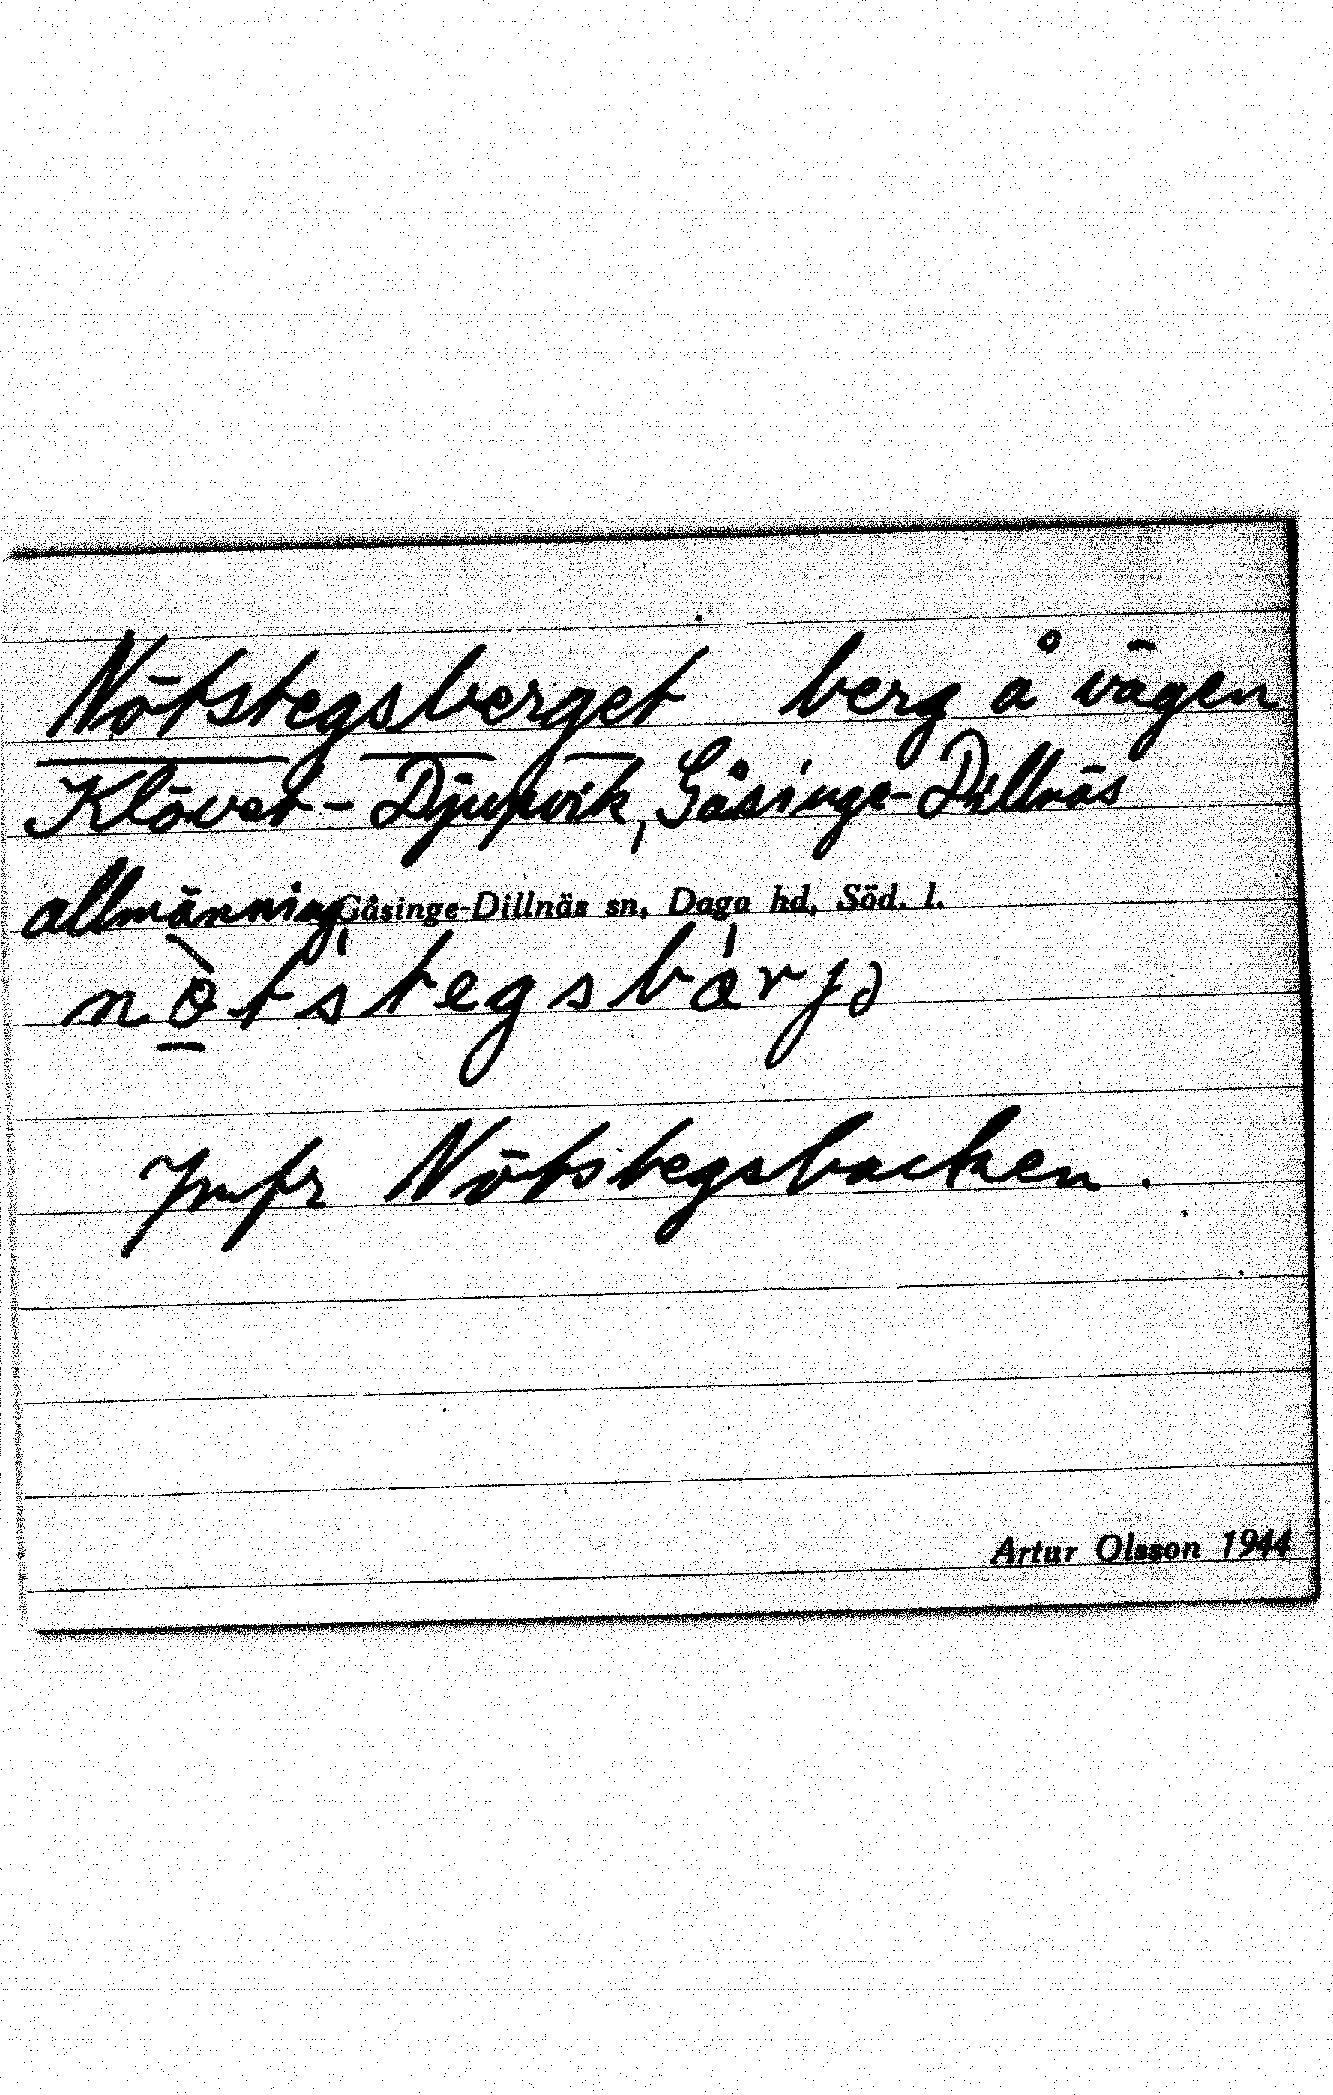 Nötstegsberget berg å vägen
Klövet - Djupvik, Gåsinge-Dillnäs
allmänning Gåsinge-Dillnäs sn, Daga hd, Söd. l.
Jmfr Nötstegsbacken.
Artur Olsson 1944